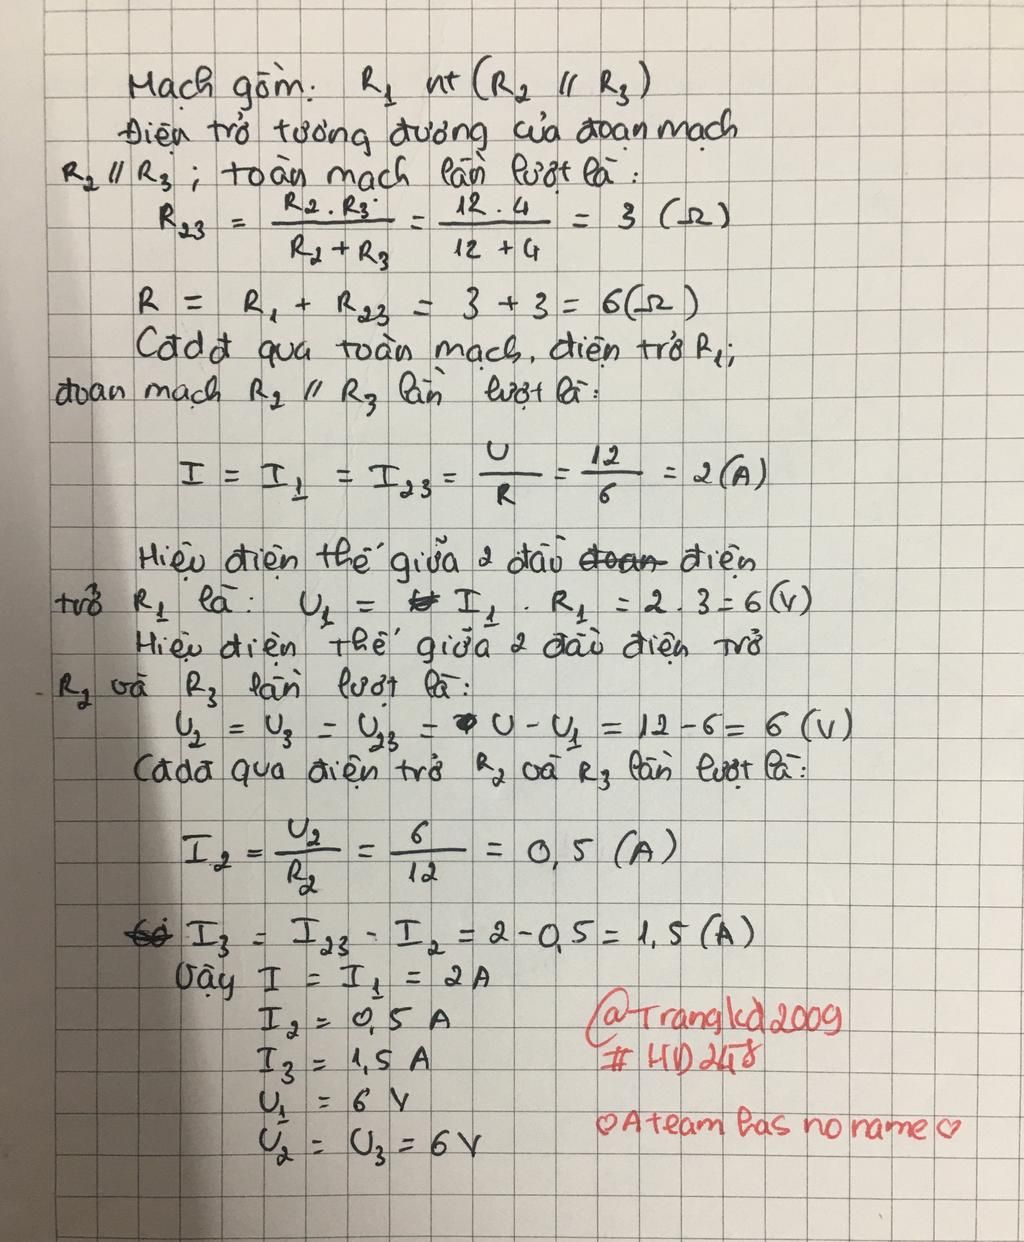 Mạch gồm: R1 nt (R2 // R3)
Điện trở tương đương của đoạn mạch
R2 // R3 ; toàn mạch lần lượt là :
R23 = R2 . R3 / R2 + R3 = 12 . 4 / 12 + 4 = 3 (Ω)
R = R1 + R23 = 3 + 3 = 6(Ω)
Cđdđ qua toàn mạch, điện trở R1;
đoạn mạch R2 // R3 lần lượt là :
I = I1 = I23 = U / R = 12 / 6 = 2 (A)
Hiệu điện thế giữa 2 đầu đoạn điện
trở R1 là : U1 = I1 . R1 = 2 . 3 = 6 (V)
Hiệu điện thế giữa 2 đầu điện trở
R2 và R3 lần lượt là :
U2 = U3 = U23 = U - U1 = 12 - 6 = 6 (V)
Cđdđ qua điện trở R2 và R3 lần lượt là :
I2 = U2 / R2 = 6 / 12 = 0,5 (A)
I3 = I23 - I2 = 2 - 0,5 = 1,5 (A)
Vậy I = I1 = 2 A
I2 = 0,5 A
I3 = 1,5 A
U1 = 6 V
U2 = U3 = 6 V
@Trangkd2009
# HD248
♡A team has no name♡